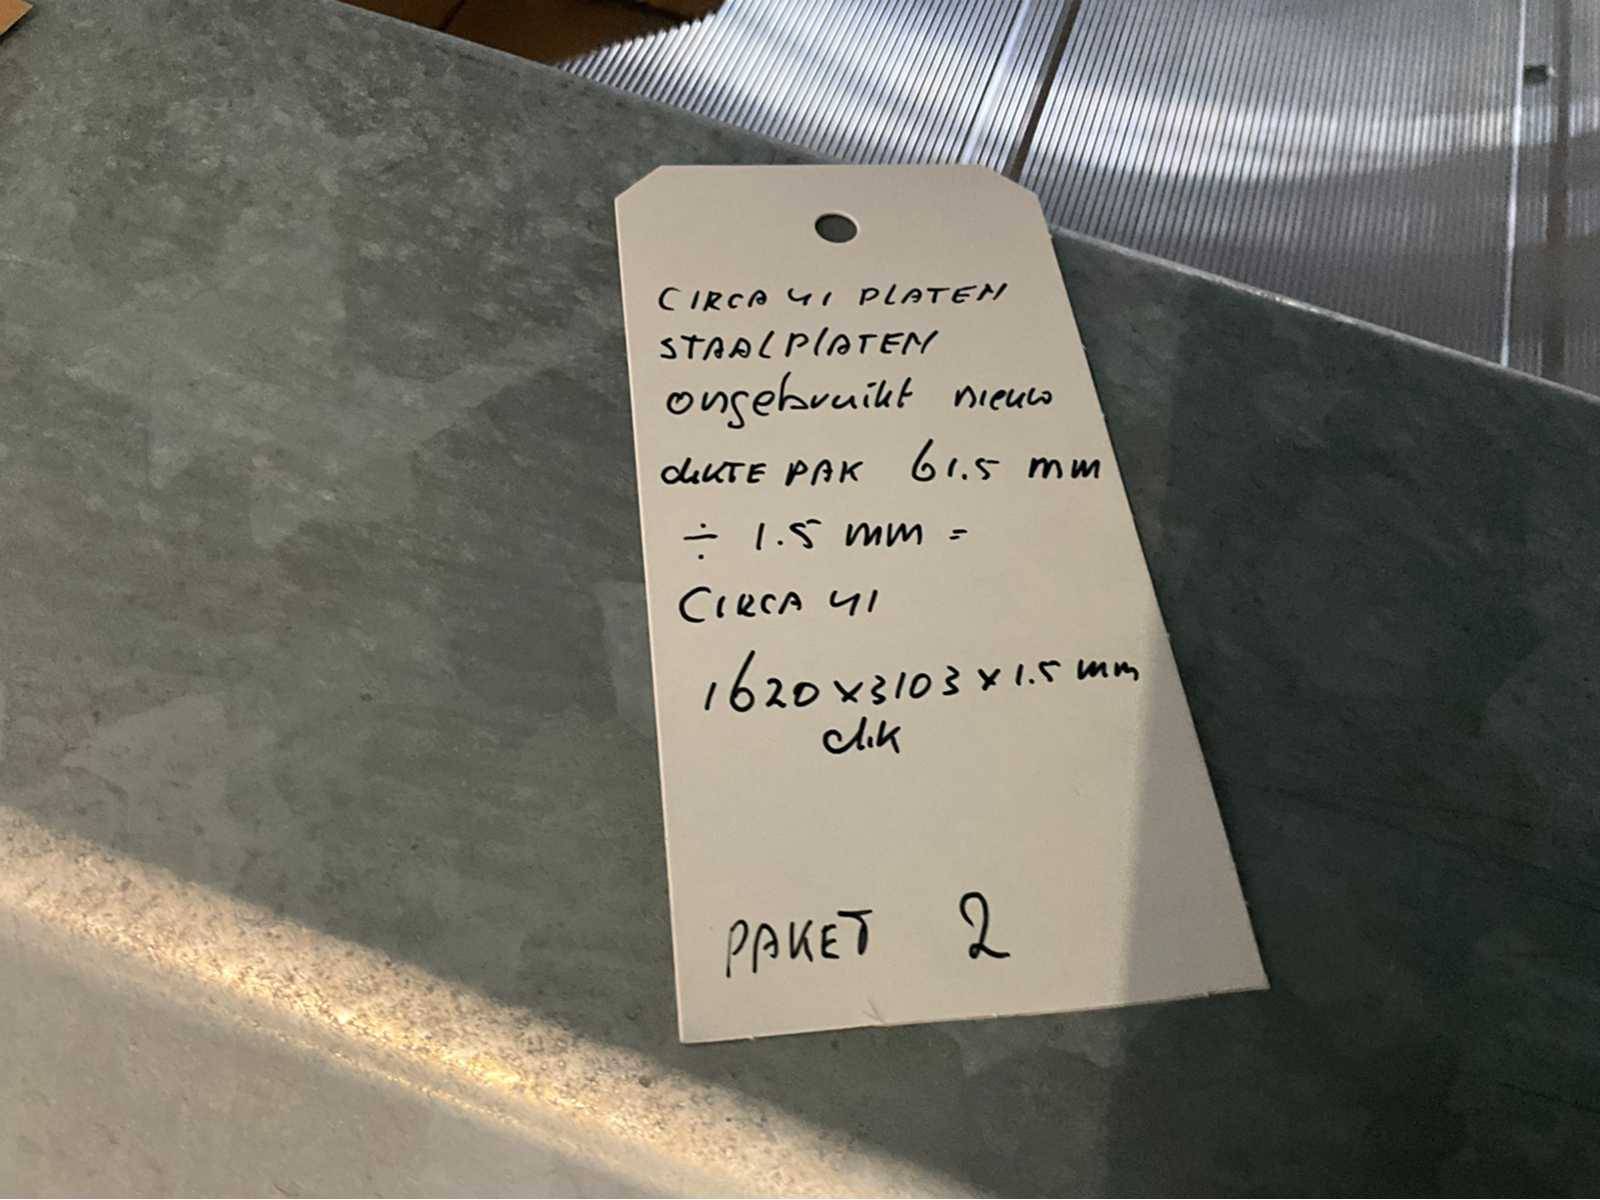 CIRCA 41 PLATEN
STAALPLATEN
ongebruikt nieuw
dikTE PAK 61.5 mm
÷ 1.5 mm =
CIRCA 41
1620 x 3103 x 1.5 mm
dik
PAKET 2